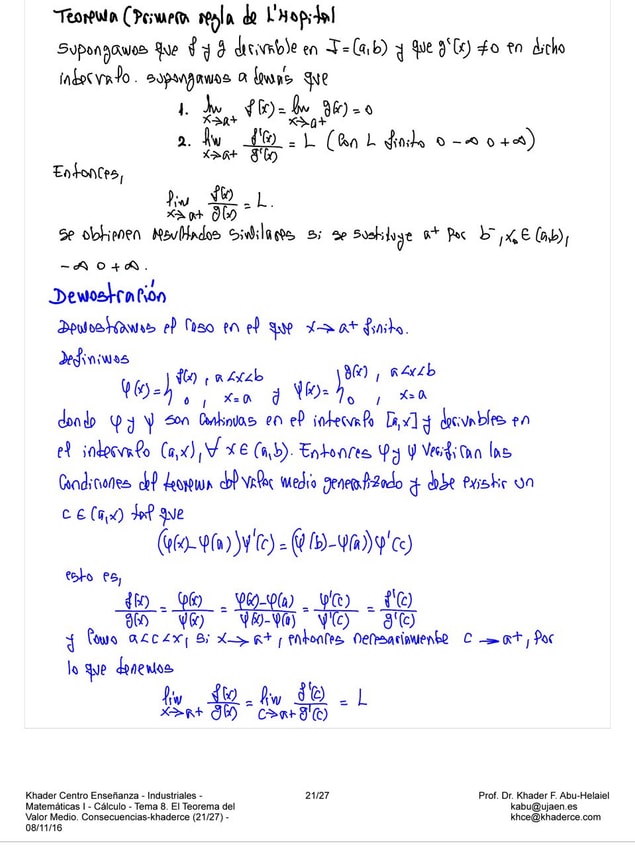 Teorema (Primera regla de L'Hopital
Supongamos que f y g derivable en I=(a,b) y que g'(x)≠0 en dicho
intervalo. supongamos además que
1. lim x→a+ f(x)=lim x→a+ g(x)=0
2. lim x→a+ f'(x)/g'(x) = L (con L finito o -∞ o +∞)
Entonces,
lim x→a+ f(x)/g(x) = L.
se obtienen resultados similares si se sustituye a+ por b-, x₀ ∈ (a,b),
-∞ o +∞.
Demostración
Demostramos el caso en el que x→a+ finito.
Definimos
φ(x)={ f(x), a<x<b ; 0, x=a y ψ(x)={ g(x), a<x<b ; 0, x=a
donde φ y ψ son continuas en el intervalo [a,x] y derivables en
el intervalo (a,x), ∀ x∈(a,b). Entonces φ y ψ verifican las
condiciones del teorema del valor medio generalizado y debe existir un
c∈(a,x) tal que
(φ(x)-φ(a))ψ'(c)=(ψ(b)-ψ(a))φ'(c)
esto es,
f(x)/g(x) = φ(x)/ψ(x) = φ(x)-φ(a)/ψ(x)-ψ(a) = φ'(c)/ψ'(c) = f'(c)/g'(c)
y como a<c<x, si x→a+, entonces necesariamente c→a+, por
lo que tenemos
lim x→a+ f(x)/g(x) = lim c→a+ f'(c)/g'(c) = L
Khader Centro Enseñanza - Industriales -
Matemáticas I - Cálculo - Tema 8. El Teorema del
Valor Medio. Consecuencias-khaderce (21/27) -
08/11/16
21/27
Prof. Dr. Khader F. Abu-Helaiel
kabu@ujaen.es
khce@khaderce.com